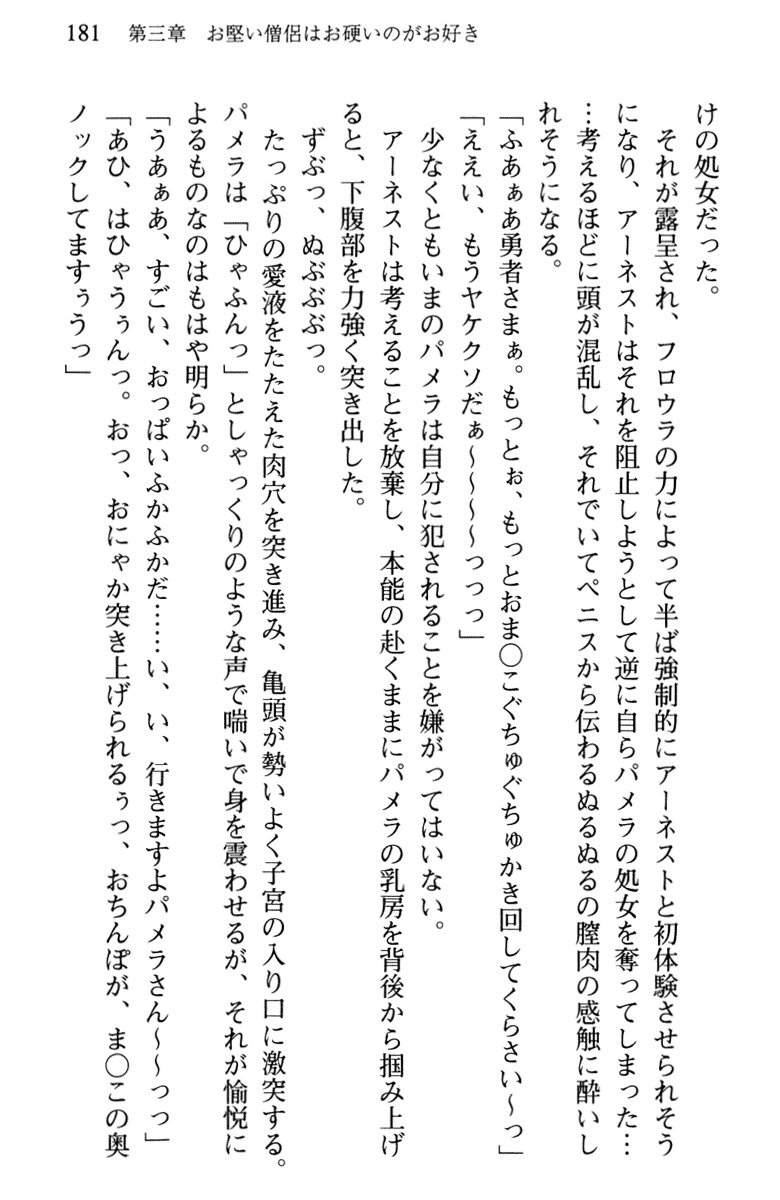 181　第三章　お堅い僧侶はお硬いのがお好き
けの処女だった。
　それが露呈され、フロウラの力によって半ば強制的にアーネストと初体験させられそう
になり、アーネストはそれを阻止しようとして逆に自らパメラの処女を奪ってしまった…
…考えるほどに頭が混乱し、それでいてペニスから伝わるぬるぬるの膣肉の感触に酔いし
れそうになる。
「ふあぁあ勇者さまぁ。もっとぉ、もっとおま○こぐちゅぐちゅかき回してくらさい～っ」
「ええい、もうヤケクソだぁ～～～～っっっ」
　少なくともいまのパメラは自分に犯されることを嫌がってはいない。
　アーネストは考えることを放棄し、本能の赴くままにパメラの乳房を背後から掴み上げ
ると、下腹部を力強く突き出した。
　ずぶっ、ぬぶぶぶっ。
　たっぷりの愛液をたたえた肉穴を突き進み、亀頭が勢いよく子宮の入り口に激突する。
パメラは「ひゃふんっ」としゃっくりのような声で喘いで身を震わせるが、それが愉悦に
よるものなのはもはや明らか。
「うあぁあ、すごい、おっぱいふかふかだ……い、い、行きますよパメラさん～～っっ」
「あひ、はひゃうぅんっ。おっ、おにゃか突き上げられるぅっ、おちんぽが、ま○この奥
ノックしてますぅうっ」